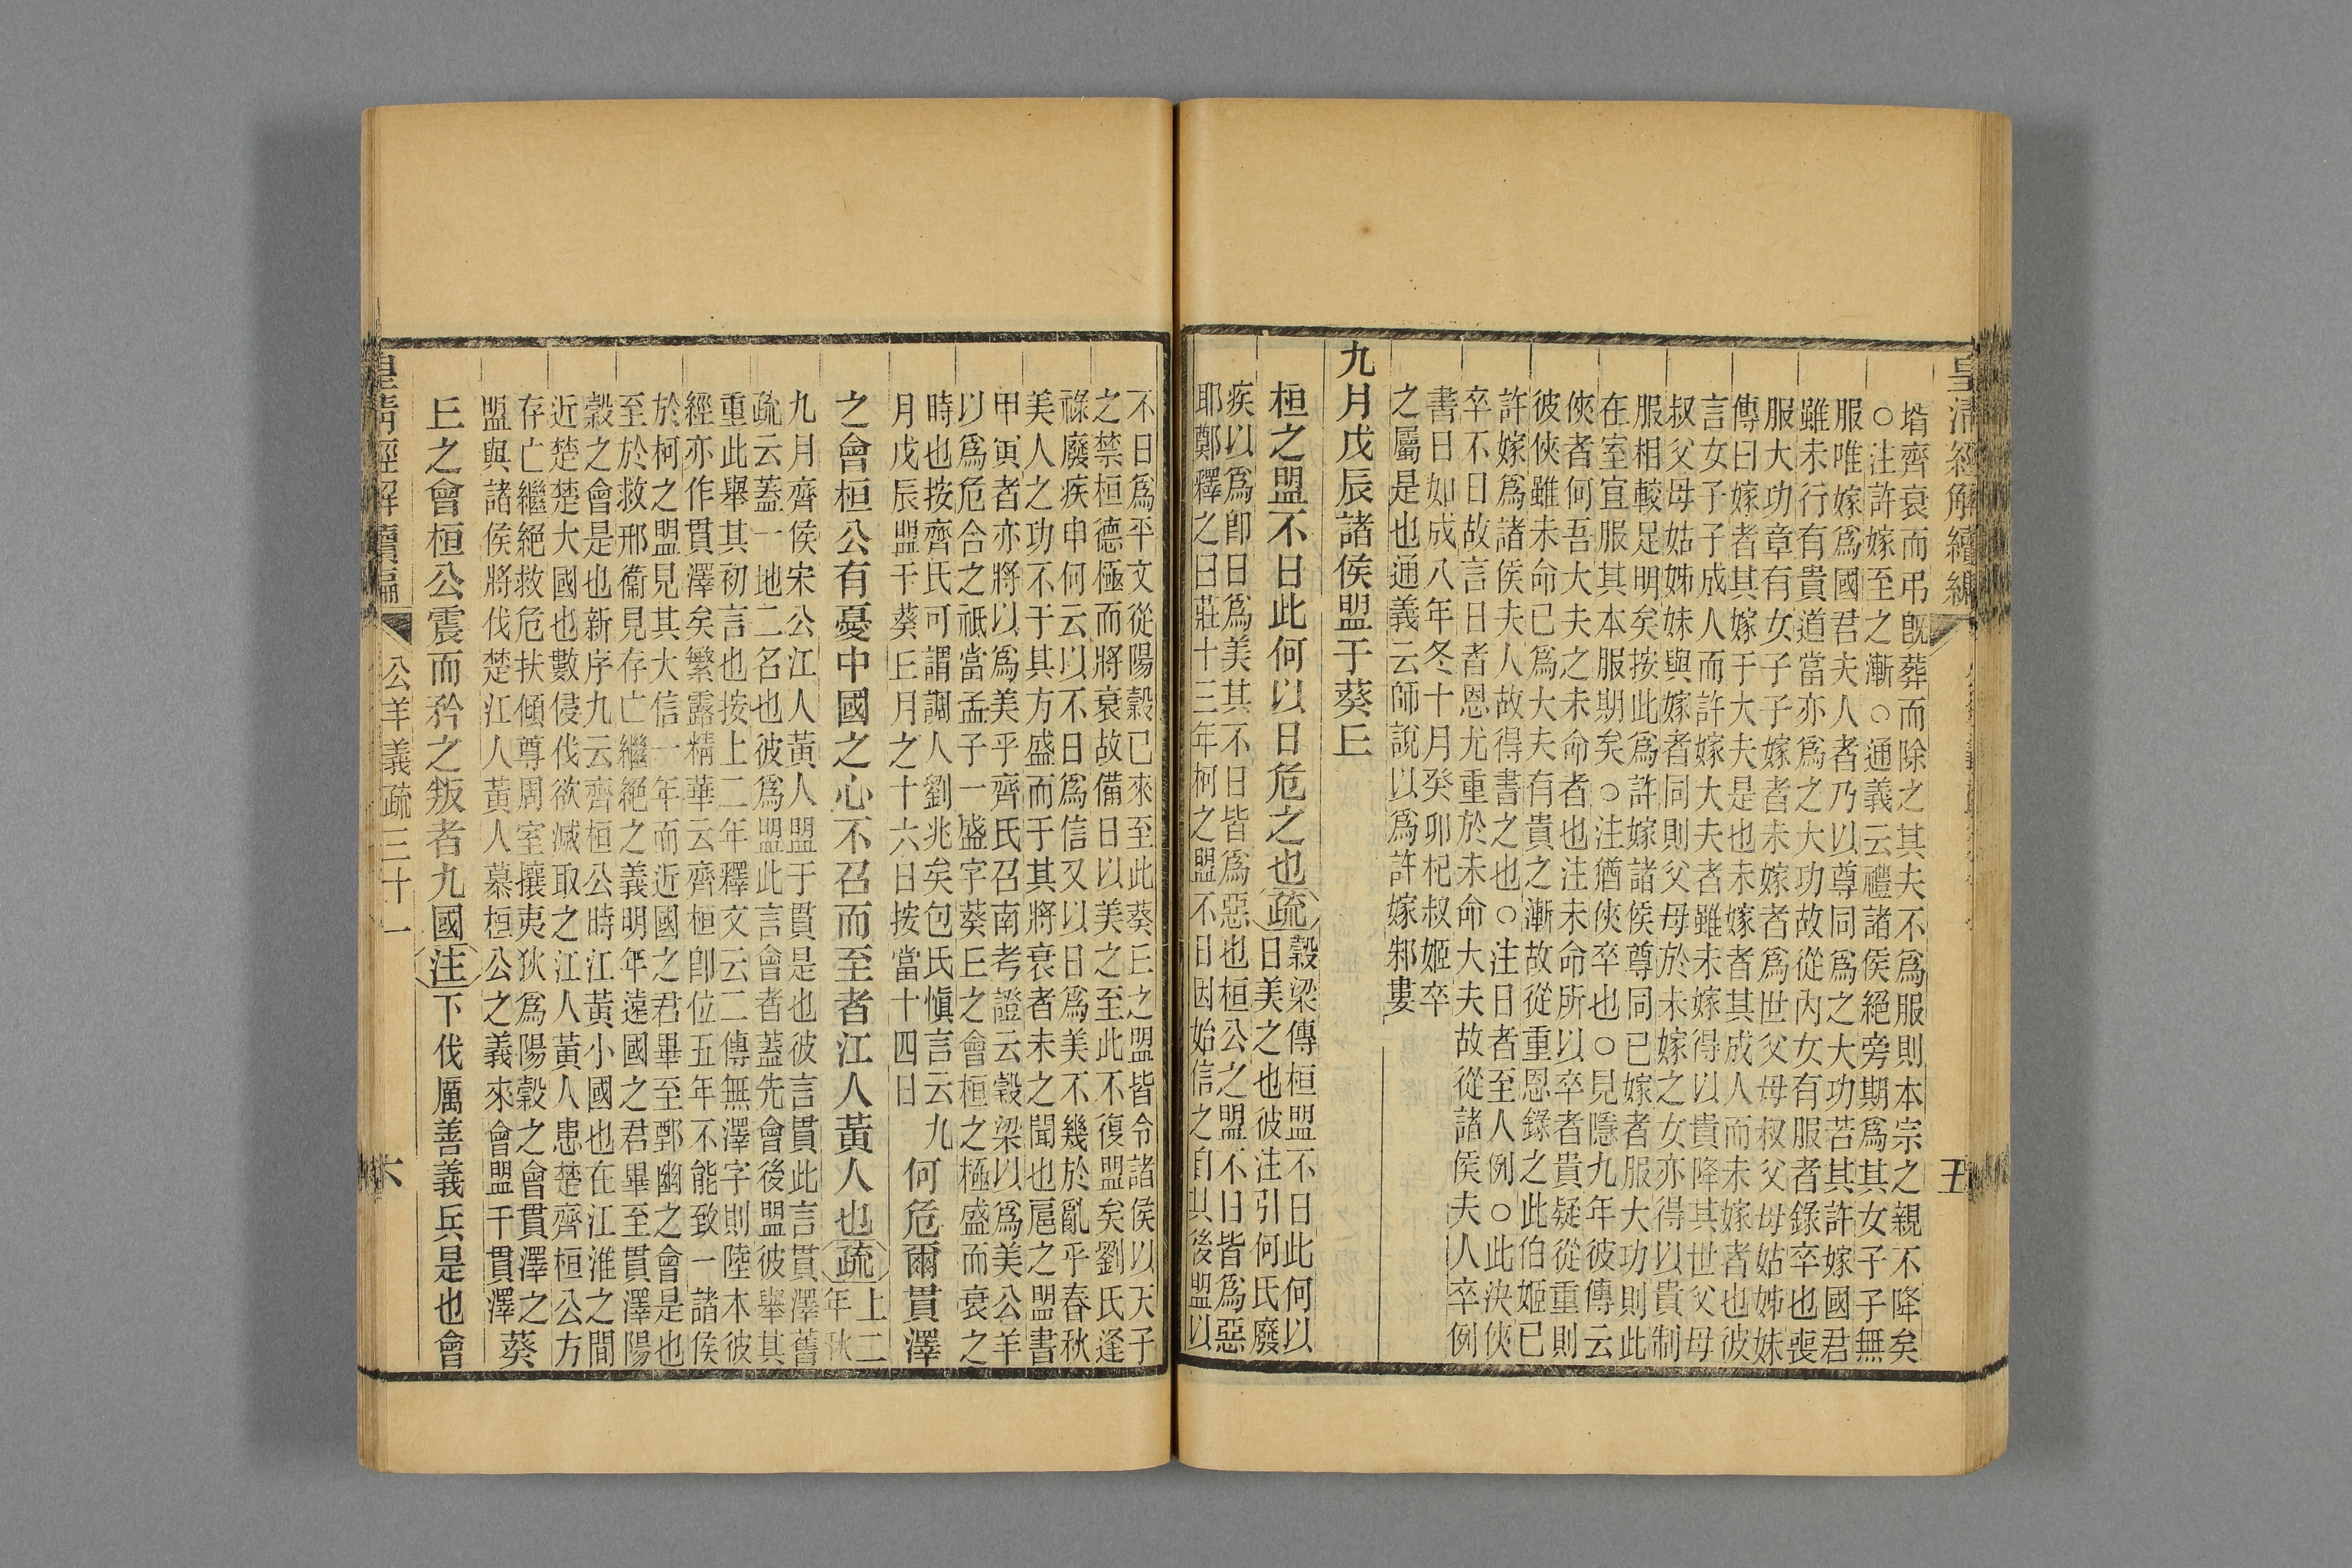 皇清經解續編
五
壻齊衰而弔旣葬而除之其夫不爲服則本宗之親不降矣
○注許嫁至之漸○通義云禮諸侯絕旁期爲其女子子無
服唯嫁爲國君夫人者乃以尊同爲之大功若其許嫁國君
雖未行有貴道當亦爲之大功故從內女有服者錄卒也喪
服大功章有女子子嫁者未嫁者爲世父母叔父母姑姊妹
傳曰嫁者其嫁于大夫是也未嫁者其成人而未嫁者也彼
言女子子成人而許嫁大夫者雖未嫁得以貴降其世父母
叔父母姑姊妹與嫁者同則父母於未嫁之女亦得以貴制
服相較足明矣按此爲許嫁諸侯尊同已嫁者服大功則此
在室宜服其本服期矣○注猶俠卒也○見隱九年彼傳云
俠者何吾大夫之未命者也注未命所以卒者貴疑從重則
彼俠雖未命已爲大夫有貴之漸故從重恩錄之此伯姬已
許嫁爲諸侯夫人故得書之也○注日者至人例○此決俠
卒不日故言日者恩尤重於未命大夫故從諸侯夫人卒例
書日如成八年冬十月癸卯杞叔姬卒
之屬是也通義云師說以爲許嫁邾婁
九月戊辰諸侯盟于葵𠀉
桓之盟不日此何以日危之也疏
穀梁傳桓盟不日此何以
日美之也彼注引何氏廢
疾以爲卽日爲美其不日皆爲惡也桓公之盟不日皆爲惡
耶鄭釋之曰莊十三年柯之盟不日因始信之自其後盟以
不日爲平文從陽穀已來至此葵𠀉之盟皆令諸侯以天子
之禁桓德極而將衰故備日以美之至此不復盟矣劉氏逢
祿廢疾申何云以不日爲信又以日爲美不幾於亂乎春秋
美人之功不于其方盛而于其將衰者未之聞也扈之盟書
甲寅者亦將以爲美乎齊氏召南考證云穀梁以爲美公羊
以爲危合之祇當孟子一盛字葵𠀉之會桓之極盛而衰之
時也按齊氏可謂調人劉兆矣包氏愼言云九
月戊辰盟于葵𠀉月之十六日按當十四日
何危爾貫澤
之會桓公有憂中國之心不召而至者江人黃人也疏
上二
年秋
九月齊侯宋公江人黃人盟于貫是也彼言貫此言貫澤舊
疏云蓋一地二名也彼爲盟此言會者蓋先會後盟彼舉其
重此舉其初言也按上二年釋文云二傳無澤字則陸本彼
經亦作貫澤矣繁露精華云齊桓卽位五年不能致一諸侯
於柯之盟見其大信一年而近國之君畢至鄄幽之會是也
至於救邢衞見存亡繼絕之義明年遠國之君畢至貫澤陽
穀之會是也新序九云齊桓公時江黃小國也在江淮之間
近楚楚大國也數侵伐欲滅取之江人黃人患楚齊桓公方
存亡繼絕救危扶傾尊周室攘夷狄爲陽穀之會貫澤之
盟與諸侯將伐楚江人黃人慕桓公之義來會盟于貫澤
葵
𠀉之會桓公震而矜之叛者九國注下伐厲善義兵是也會
皇清經解續編
公羊義疏三十一
六